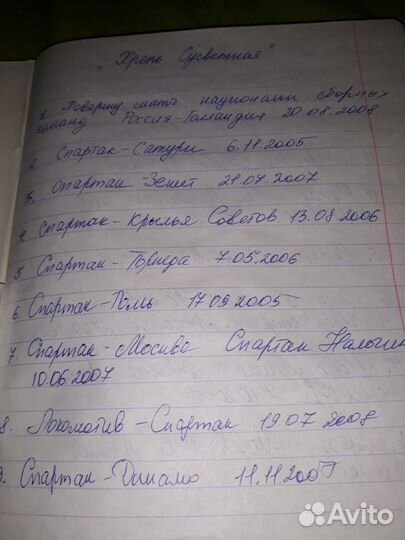 „Хрень Сусветная"
1. Товарищ матч национальн сборных
команд Россия-Голландия 20.08.2008
2. Спартак-Сатурн 6.11.2005
3. Спартак-Зенит 21.07.2007
4. Спартак-Крылья Советов 13.08.2006
5. Спартак-Торпедо 7.05.2006
6. Спартак-Томь 17.09 2005
7. Спартак-Москва Спартак Нальчик
10.06.2007
8. Локомотив-Спартак 19.07 2008
9. Спартак-Динамо 11.11.2007
Avito